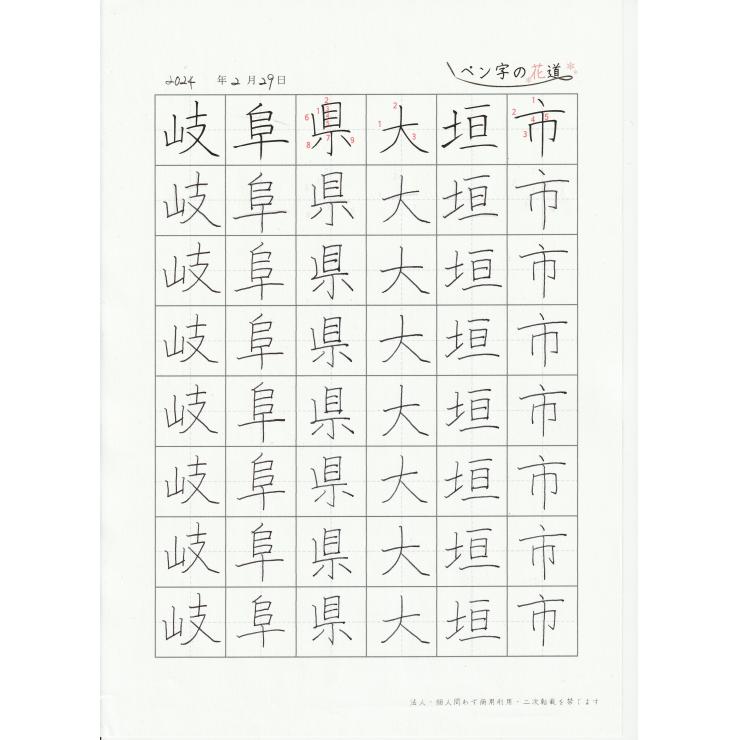 2024 年 2 月 29 日
ペン字の花道
岐阜県大垣市
岐阜県大垣市
岐阜県大垣市
岐阜県大垣市
岐阜県大垣市
岐阜県大垣市
岐阜県大垣市
岐阜県大垣市
法人・個人問わず商用利用・二次転載を禁じます